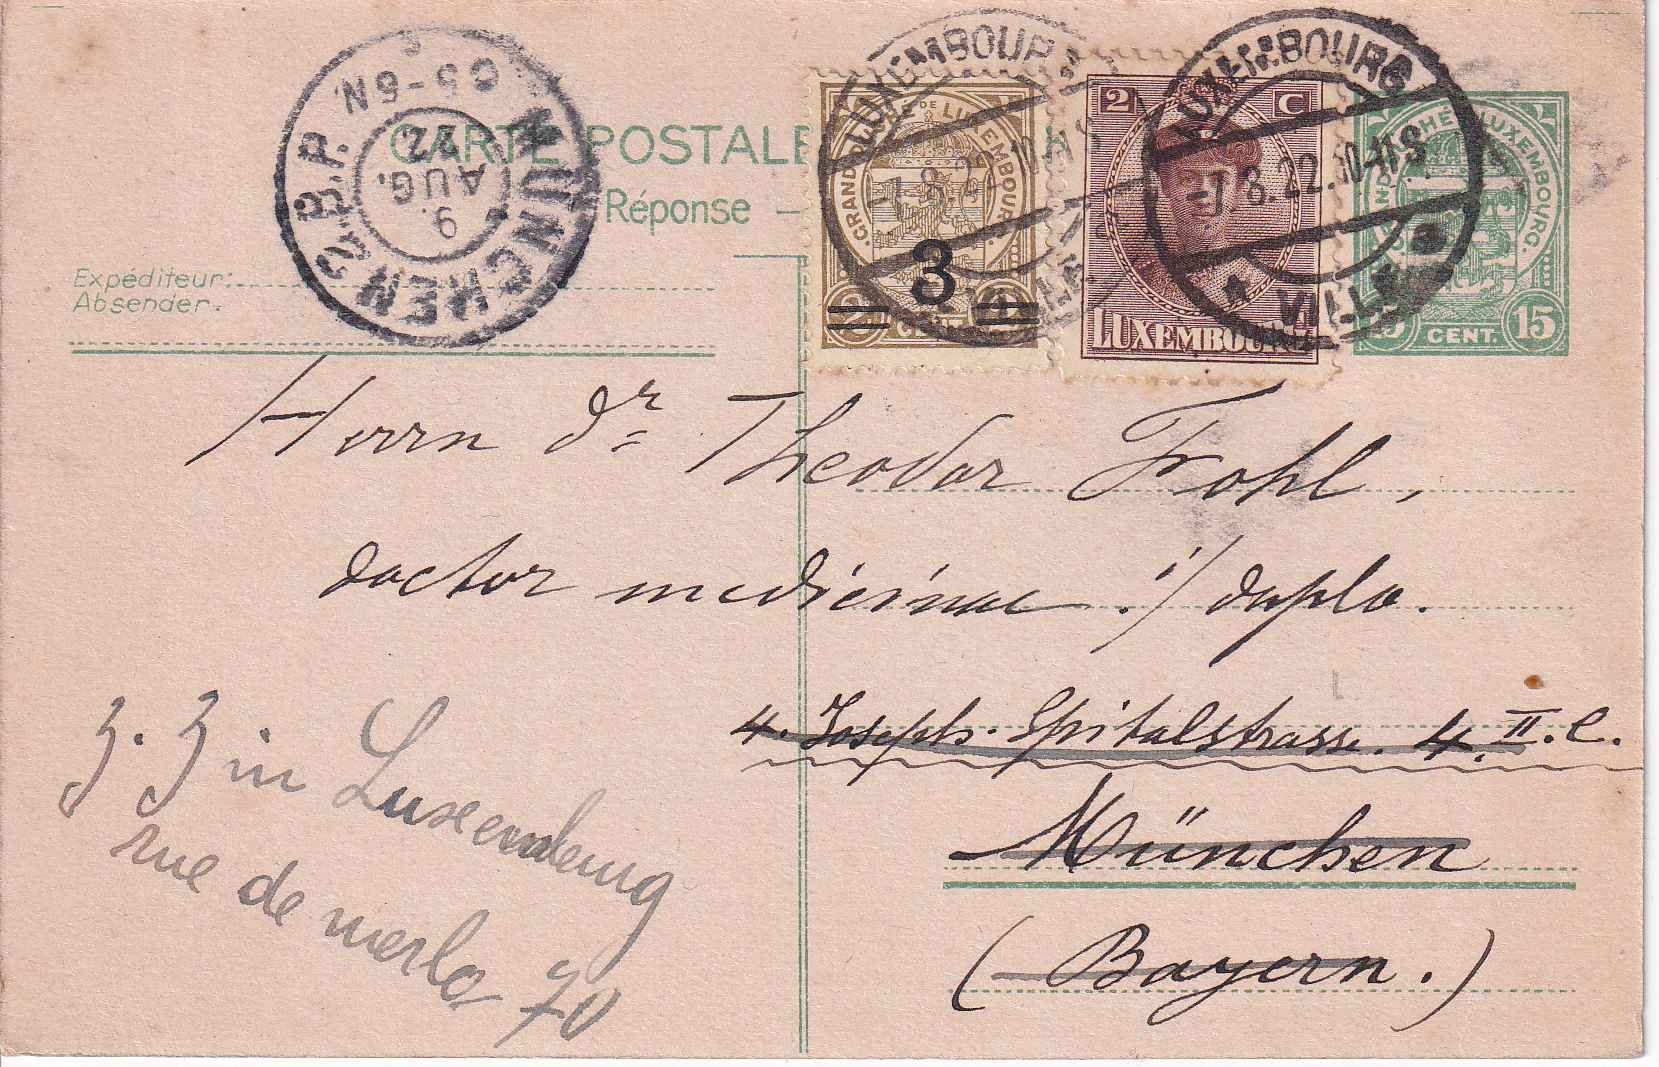 CARTE POSTALE
Réponse —
Expéditeur:
Absender:
MÜNCHEN 2 B.P.
9. AUG. 22
C 5-6 N.
LUXEMBOURG
-7.8.22.
VILLE
GRAND DUCHÉ DE LUXEMBOURG.
3
2 CENT.
LUXEMBOURG
-7.8.22.
VILLE
2 C
LUXEMBOURG
LUXEMBOURG.
15 CENT. 15
Herrn Dr Theodor Frohl,
doctor medicinae i/ duplo.
4. Joseph-Spitalstrasse. 4. II. l.
München
(Bayern.)
z. Z in Luxemburg
rue de merla 70